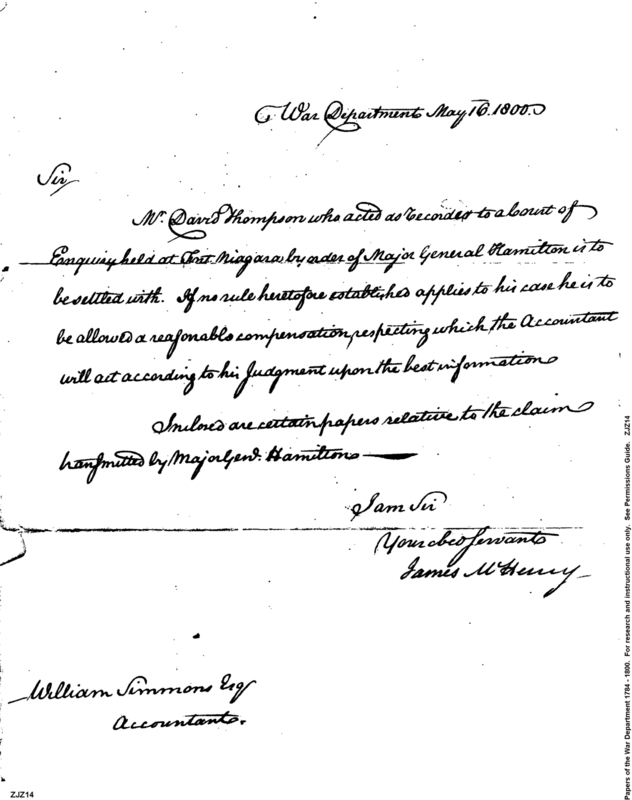 War Department May 16. 1800.
Sir
Mr. David Thompson who acted as Recorder to a Court of
Enquiry held at Fort Niagara by order of Major General Hamilton is to
be settled with. If no rule heretofore established applies to his case he is to
be allowed a reasonable compensation, respecting which the Accountant
will act according to his Judgment upon the best information
Inclosed are certain papers relative to the claim
transmitted by Major Genl. Hamilton
I am Sir
Your obed Servant
James McHenry
William Simmons Esq
Accountant.
ZJZ14
Papers of the War Department 1784 - 1800. For research and instructional use only. See Permissions Guide. ZJZ14